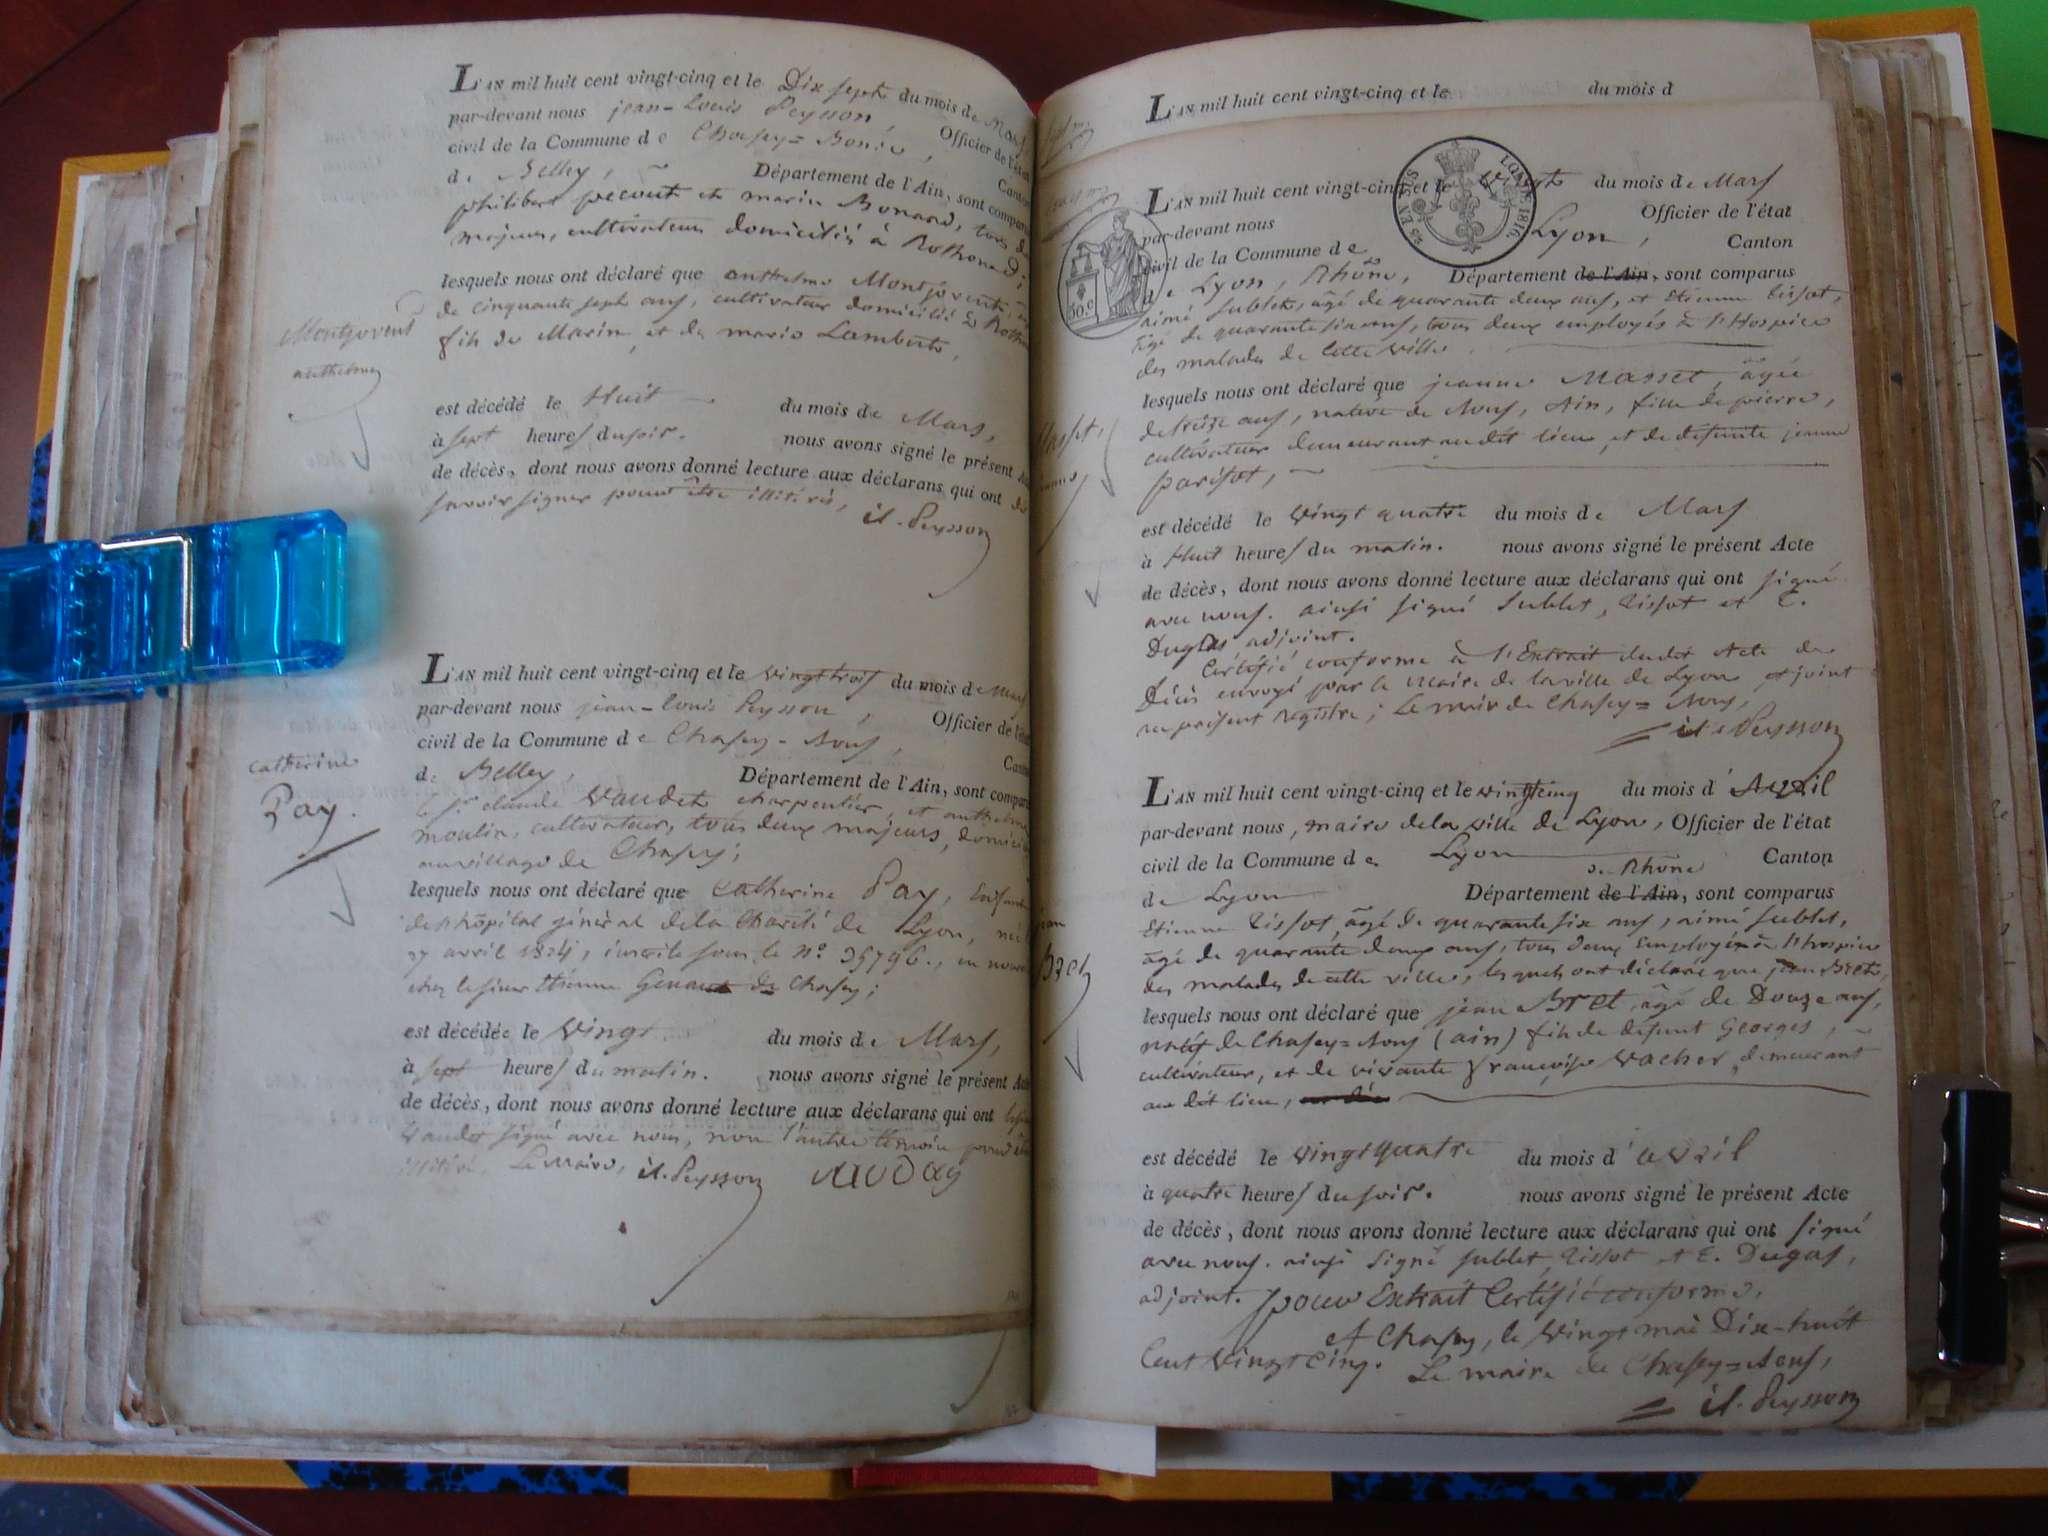 L'AN mil huit cent vingt-cinq et le Dix sept du mois de Mars
par-devant nous jean-Louis Peysson, Officier de l'état
civil de la Commune de Chasey=Bons, Canton
de Belley, Département de l'Ain, sont comparus
philibert pecout et marie Bonard, tous
majeurs, cultivateurs domiciliés à Rothonod
lesquels nous ont déclaré que anthelme Montjovent,
de cinquante sept ans, cultivateur domicilié à
fils de Marin et de marie Lambert,
Montjovent
anthelme
est décédé le Huit du mois de Mars,
à sept heures du soir. nous avons signé le présent
de décès, dont nous avons donné lecture aux déclarans qui ont dit
savoir signer pour être illitérés, jl. Peysson
L'AN mil huit cent vingt-cinq et le vingt trois du mois de Mars
par-devant nous jean-Louis Peysson, Officier de l'état
civil de la Commune de Chasey-Bons, Canton
de Belley, Département de l'Ain, sont comparus
le sr claude Vaudet charpentier, et anthelme
moulin, cultivateur, tous deux majeurs,
au village de Chasey;
catherine
Pay.
lesquels nous ont déclaré que Catherine Pay,
de l'hôpital général de la Charité de Lyon,
27 avril 1824, inscrite sous le no. 35796.,
chez le sieur Etienne de Chasey;
est décédée le Vingt du mois de Mars,
à sept heures du matin. nous avons signé le présent Acte
de décès, dont nous avons donné lecture aux déclarans qui ont
Vaudet signé avec nous, non l'autre témoin pour
illitéré. Le Maire, jl. Peysson
L'AN mil huit cent vingt-cinq et le du mois d
L'AN mil huit cent vingt-cinq et le du mois de Mars
par-devant nous Lyon, Officier de l'état
civil de la Commune de Canton
de Lyon, Rhône, Département de l'Ain, sont comparus
aimé Sublet, âgé de quarante deux ans, et Etienne Tissot,
âgé de quarante six ans, tous deux employés à l'Hospice
des malades de cette ville.
lesquels nous ont déclaré que jeanne Masset, âgée
de treize ans, native de Bons, Ain, fille de pierre,
cultivateur demeurant au dit lieu, et de defunte jeanne
parisot,
est décédé le Vingt quatre du mois de Mars
à Huit heures du matin. nous avons signé le présent Acte
de décès, dont nous avons donné lecture aux déclarans qui ont signé
avec nous. ainsi signé Sublet, Tissot et E.
Dugas adjoint.
Certifié conforme à l'Extrait dudit Acte de
Décès envoyé par le maire de la ville de Lyon et joint
au présent registre; Le maire de Chasey=Bons,
jl. Peysson
L'AN mil huit cent vingt-cinq et le vingt cinq du mois d'Avril
par-devant nous, maire de la ville de Lyon, Officier de l'état
civil de la Commune de Lyon Canton
du Rhône
de Lyon Département de l'Ain, sont comparus
Etienne Tissot, âgé de quarante six ans, aimé sublet,
âgé de quarante deux ans, tous deux Employés à l'hospice
des malades de cette ville, lesquels ont déclaré que jean Bret,
lesquels nous ont déclaré que jean Bret, âgé de Douze ans,
natif de Chasey=Bons (ain) fils de defunt Georges,
cultivateur, et de vivante françoise Vacher, demeurant
au dit lieu,
est décédé le vingt quatre du mois d'avril
à quatre heures du soir. nous avons signé le présent Acte
de décès, dont nous avons donné lecture aux déclarans qui ont signé
avec nous. ainsi Signé sublet, Tissot et E. Dugas,
adjoint. pour Extrait Certifié conforme,
A Chasey, le Vingt mai Dix-huit
Cent Vingt Cinq. Le maire de Chasey=Bons,
jl. Peysson